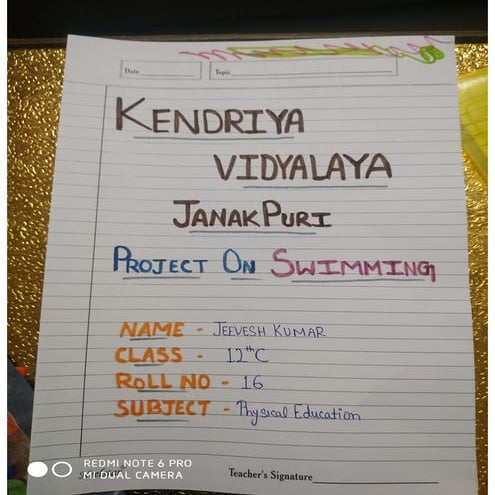 Date
Topic
KENDRIYA
VIDYALAYA
JANAKPURI
PROJECT ON SWIMMING
NAME - JEEVESH KUMAR
CLASS - 12thC
ROLL NO - 16
SUBJECT - Physical Education
REDMI NOTE 6 PRO
MI DUAL CAMERA
Teacher's Signature